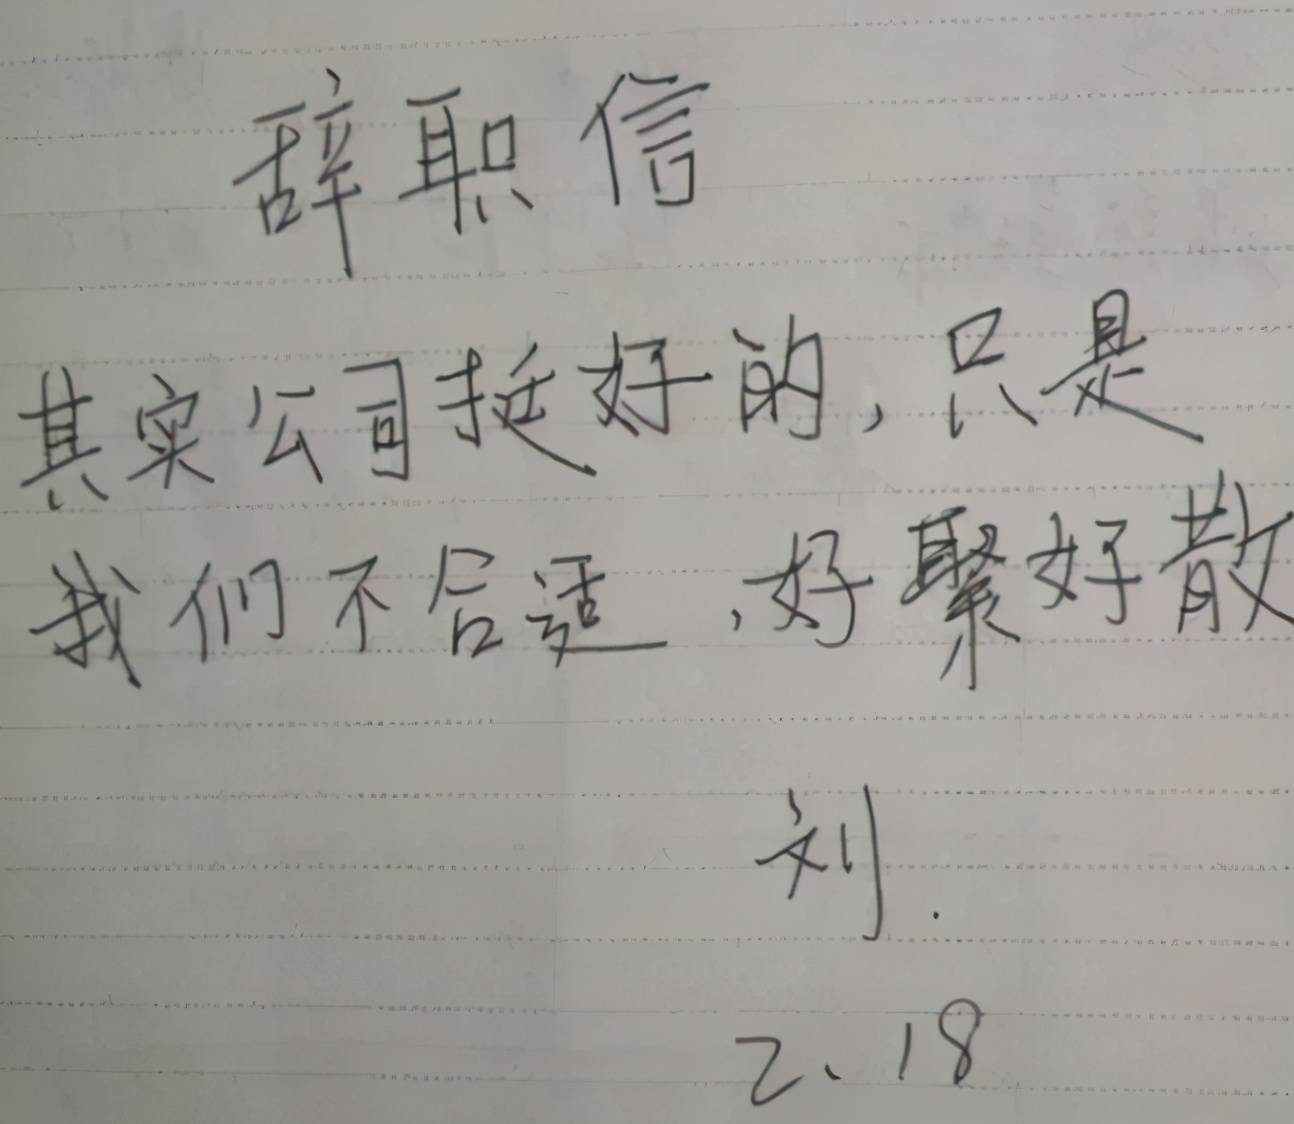 辞职信
其实公司挺好的,只是
我们不合适,好聚好散
刘.
2、18